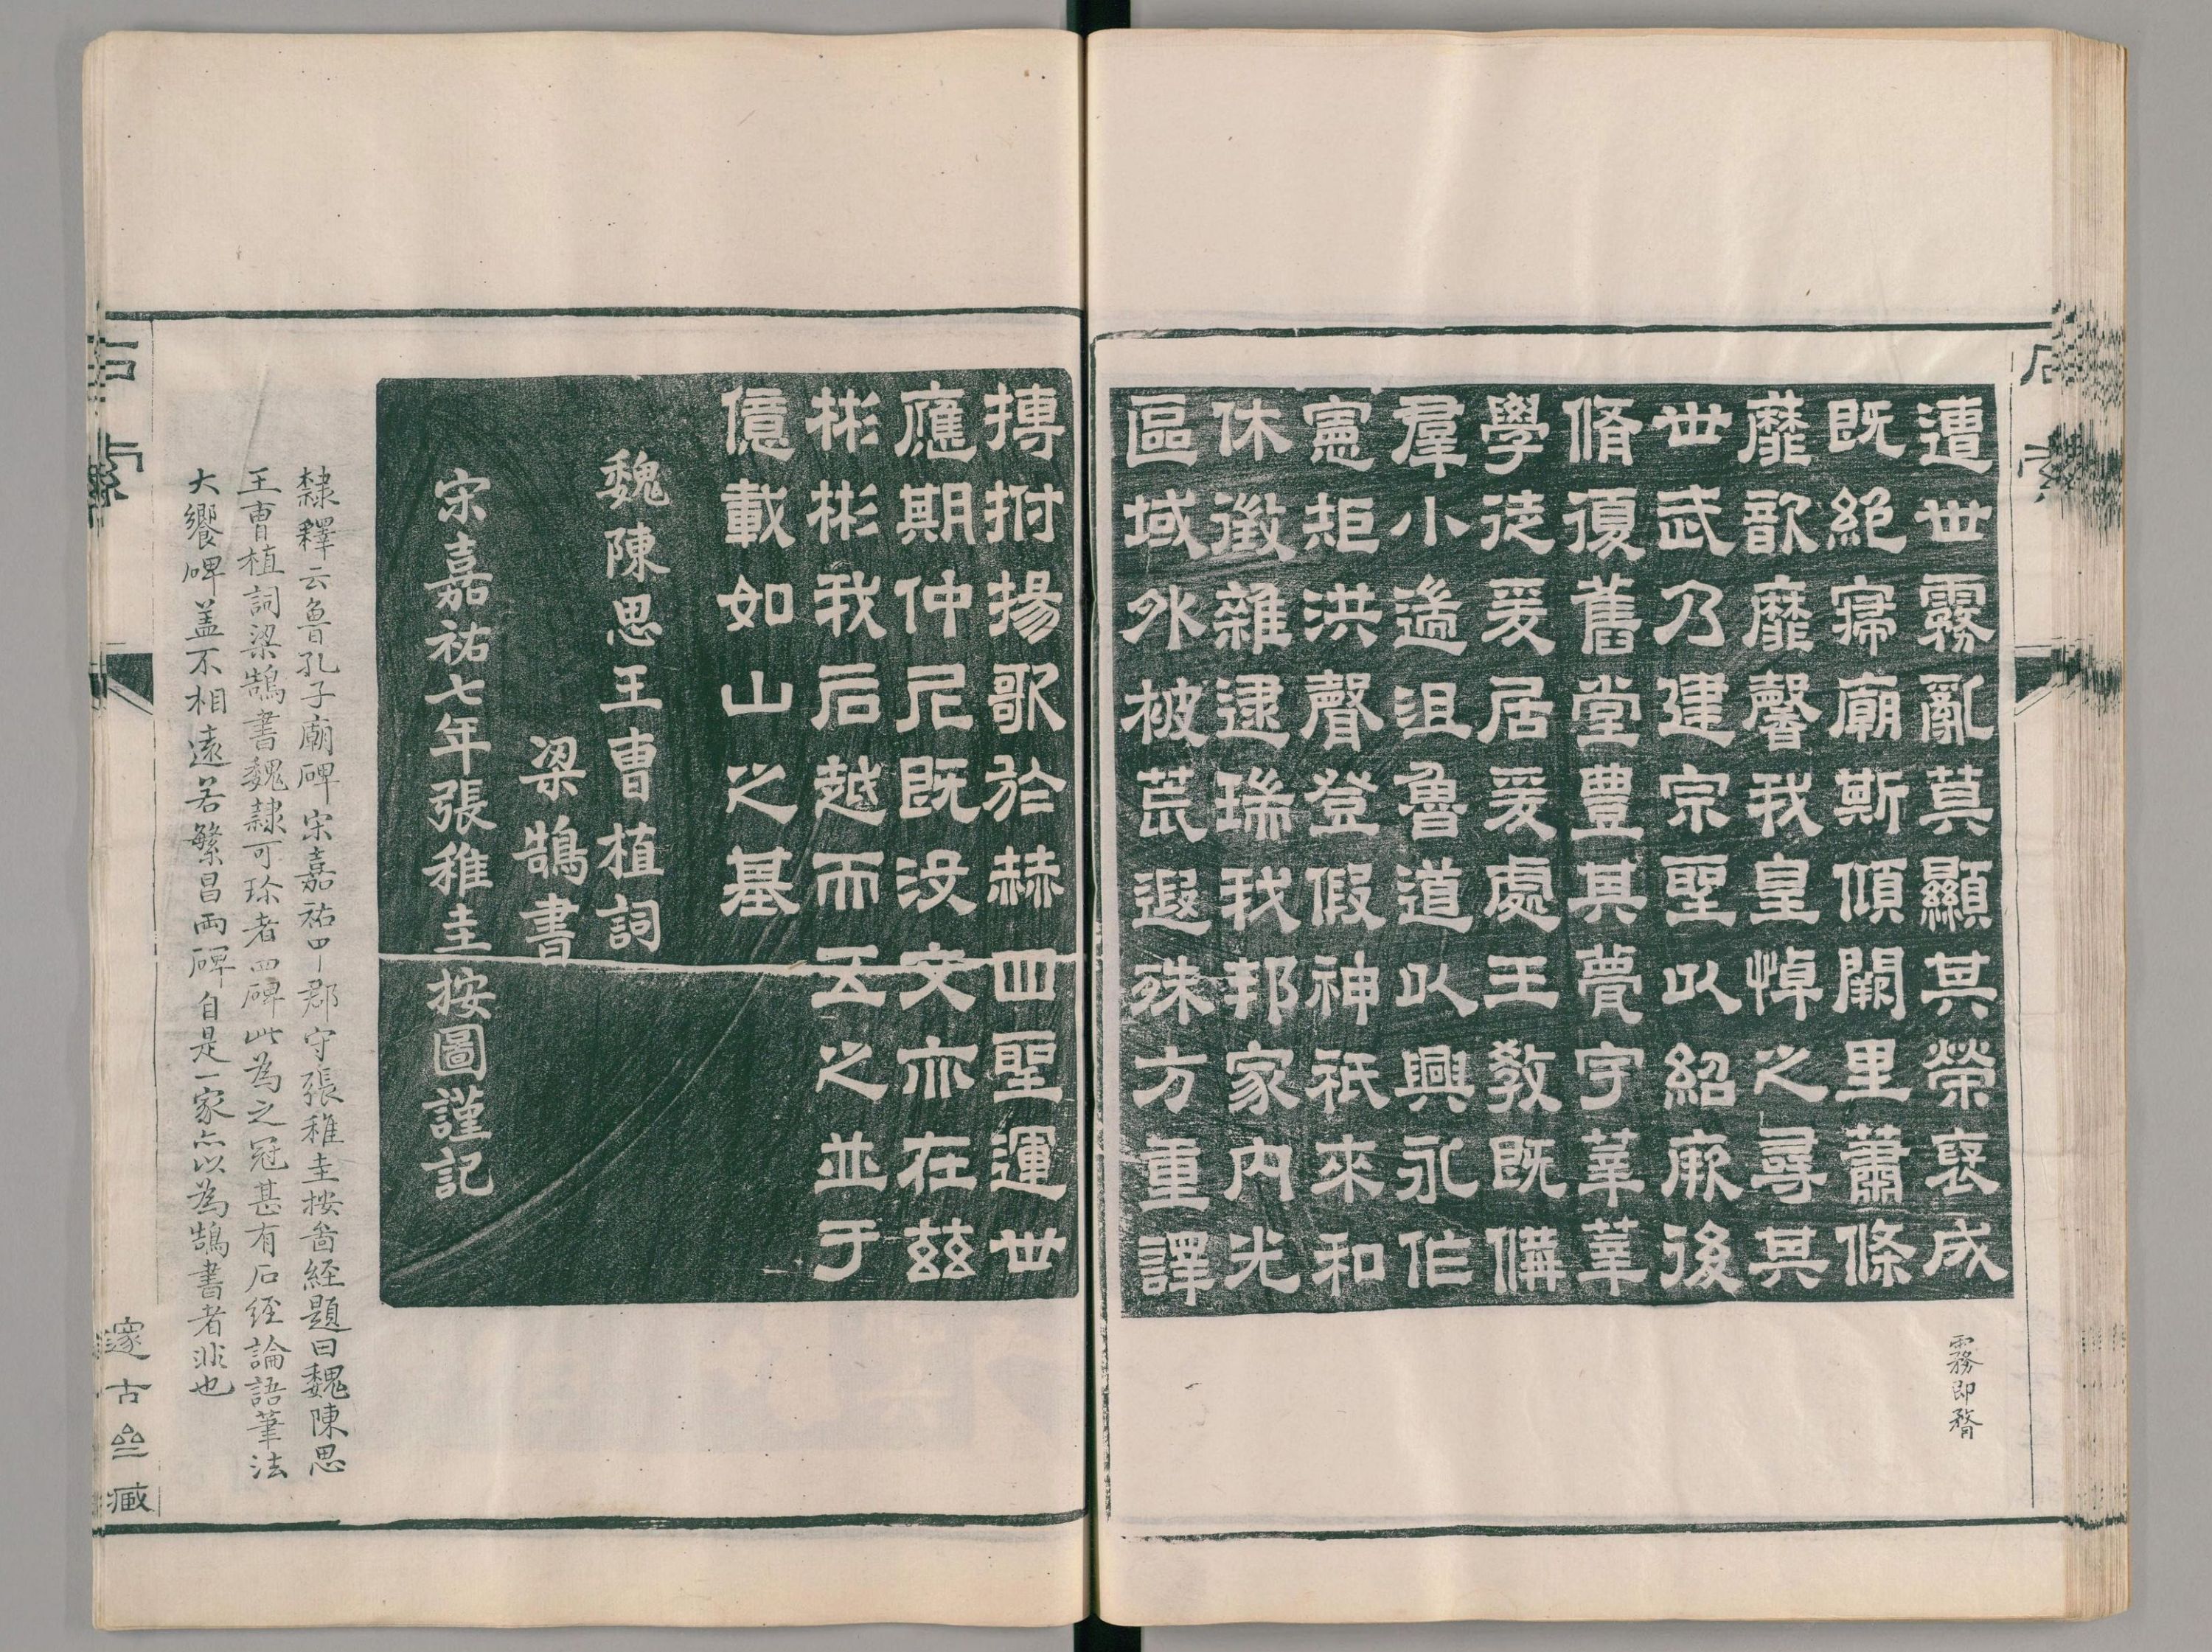 遭世霧亂莫顯其榮襃成
既絕寢廟斯傾闕里蕭條
靡歆靡馨我皇悼之尋其
世武乃建宗聖以紹厥後
脩復舊堂豐其甍宇莘莘
學徒爰居爰處王教既備
羣小遄沮魯道以興永作
憲矩洪聲登假神祇來和
休徵雜遝瑞我邦家內光
區域外被荒遐殊方重譯
霧即瞀
搏拊揚歌於赫四聖運世
應期仲尼既沒文亦在茲
彬彬我后越而五之並于
億載如山之基
魏陳思王曹植詞
梁鵠書
宋嘉祐七年張稚圭按圖謹記
隸釋云魯孔子廟碑宋嘉祐中郡守張稚圭按啚經題曰魏陳思
王曹植詞梁鵠書魏隸可珍者四碑此為之冠甚有石經論語筆法
大饗碑蓋不相遠若繁昌兩碑自是一家亦以為鵠書者非也
石索
邃古亝藏